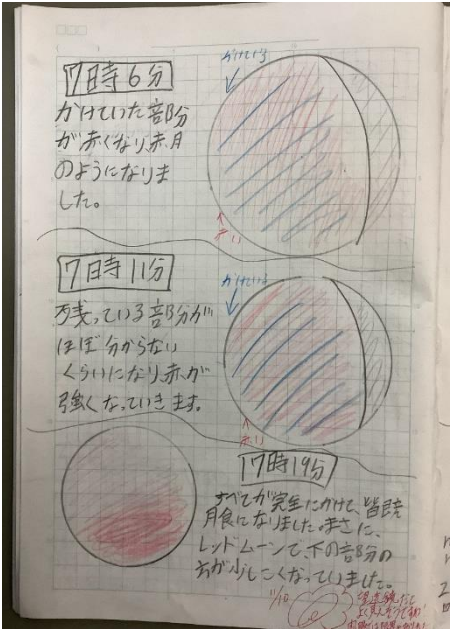 7時6分
かけていた部分
が赤くなり、赤月
のようになりま
した。
かけている
赤い
7時11分
残っている部分が
ほぼ分からない
くらいになり、赤が
強くなっていきます。
かけている
赤い
7時19分
すべてが完全にかけて、皆既
月食になりました。まさに、
レッドムーンで、下の部分の
方が少しこくなっていました。
11/10
望遠鏡だと